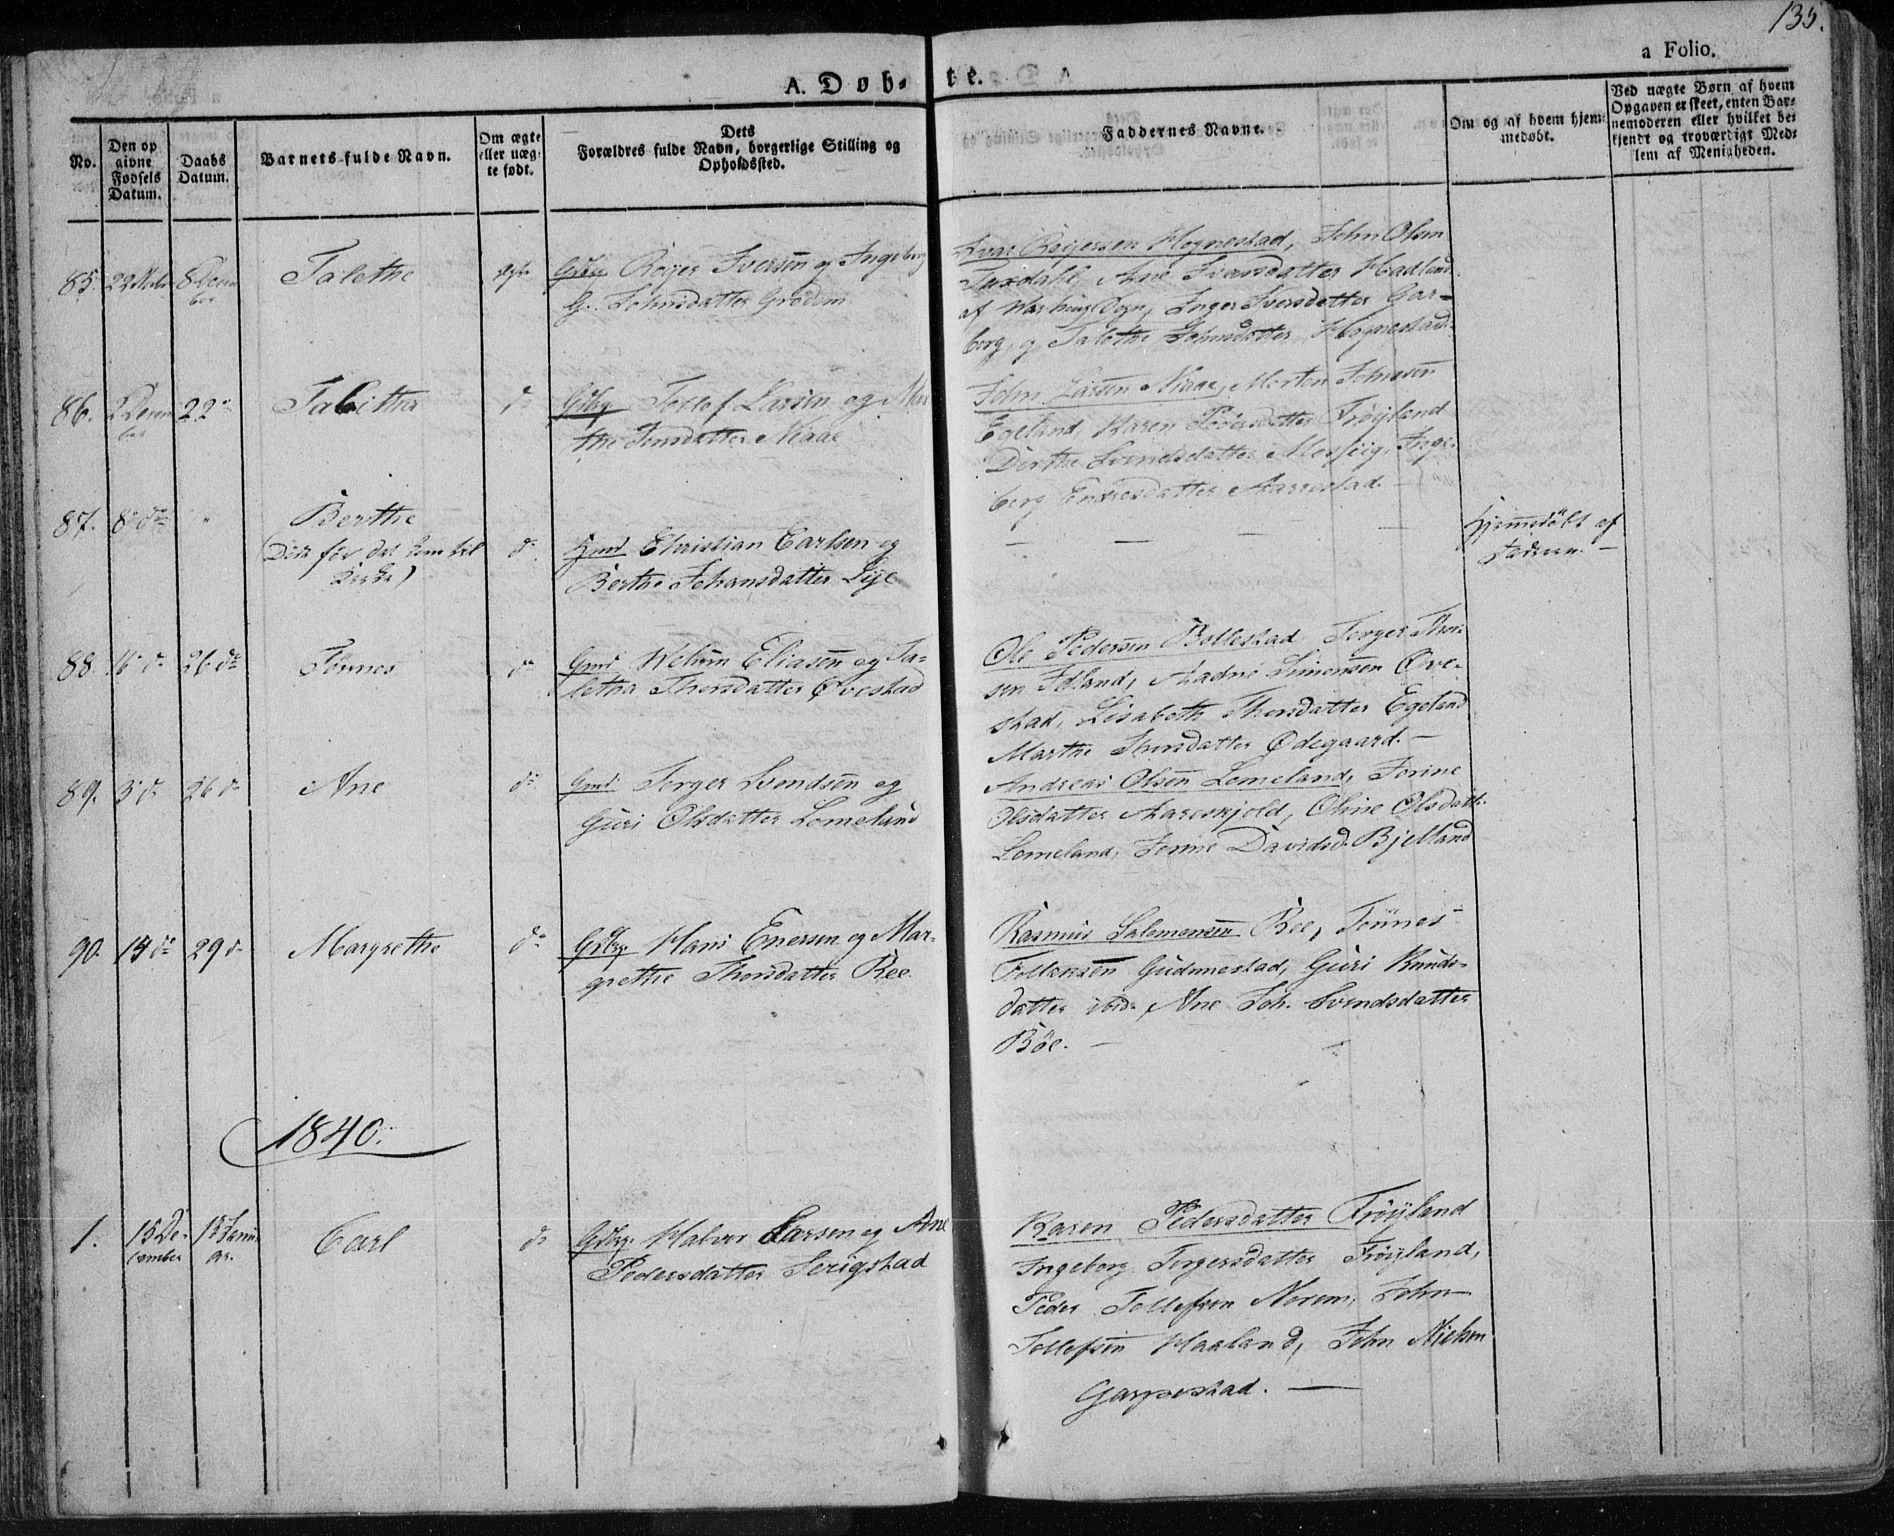 135.
a Folio.
A. Døb-te.
No.
Den op
givne
Fødsels
Datum.
Daabs
Datum.
Barnets fulde Navn.
Om ægte
eller uæg-
te født.
Dets
Forældres fulde Navn, borgerlige Stilling og
Opholdssted.
Faddernes Navne.
Om og af hvem hjem-
medøbt.
Ved uægte Børn af hvem
Opgaven er skeet, enten Bar-
nemoderen eller hvilket be-
kjendt og troværdigt Med-
lem af Menigheden.
85. 22 8 Decem
ber
Talethe
Roger Iversen og Ingeborg
Johnsdatter Grødem
Ivar Rogersen Hognestad, John Olsen
Ane Iversdatter Hadland
af Inger Iversdatter Gar-
borg, og Talethe Johnsdatter Hognestad.
86. 2 Decem
ber
22
Tabitha
do
Gdbg Tollef Larsen og Mar
the Jonsdatter Niaae
John Larsen Niaae, Morten Johnsen
Egeland, Karen Pedersdatter Frøyland
Dorthe Svendsdatter Inge
borg Endresdatter Aarrestad. -
87. 8 do "
Berthe
(Død før det kom til
Kirke)
do
Hmd Christian Carlsen og
Berthe Johansdatter Lye
— — — —
Hjemmedøbt af
Faderen. -
88 16 do 26 do
Tønnes
do
Gmd Elias⁠en og Ta-
letha Thorsdatter Ovestad
Ole Pedersen Bollestad Torger Thor
sen Aadne Simonsen Ove-
stad, Lisabeth Thorsdatter Egeland
Marthe Thorsdatter Ødegaard. -
89. 3 do 26 do
Ane
do
Gmd Torger Svendsen og
Guri Olsdatter Lomeland
Andreas Olsen Lomeland, Torine
Olsdatter Aareskjold, Oline Olsdatt.
Lomeland, Davidsd. Bjelland
90. 15 do 29 do
Margrethe
do
Gdbg Hans Enersen og Mar-
grethe Thorsdatter Ree.
Rasmus Salomonsen Ree, Tønnes
Gudmestad, Guri Knuds-
datter ibid. Ane Joh. Svendsdatter
Bøe. -
1840.
1. 15 De-
cember
15 Janu
ar.
Carl
do
Gdbg. Halvor Larsen og Ane
Pedersdatter Serigstad
Karen Pedersdatter Frøyland
Ingeborg Torgersdatter Frøyland,
Peder Tollefsen Norem, John
Tollefsen Haaland, John Nielsen
Garpestad. —